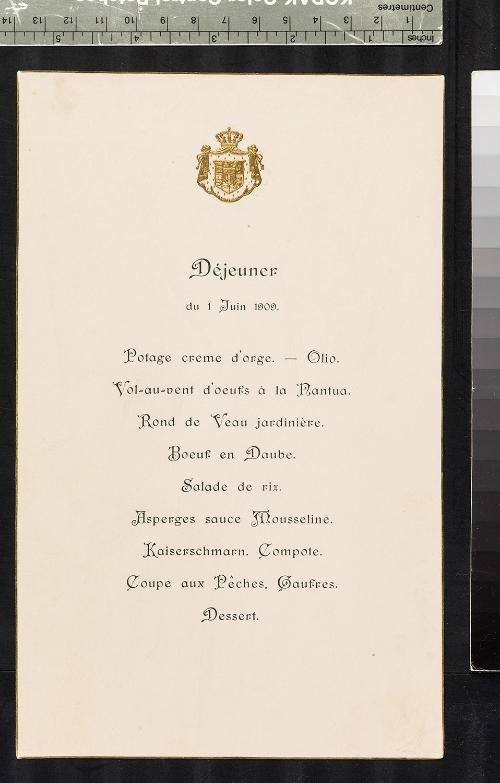 Déjeuner
du 1 Juin 1909.
Potage creme d'orge. — Olio.
Vol-au-vent d'oeufs à la Nantua.
Rond de Veau jardinière.
Boeuf en Daube.
Salade de rix.
Asperges sauce Mousseline.
Kaiserschmarn. Compote.
Coupe aux Pêches, Gaufres.
Dessert.
Centimetres
1 2 3 4 5 6 7 8 9 10 11 12 13 14
Inches 1 2 3 4 5